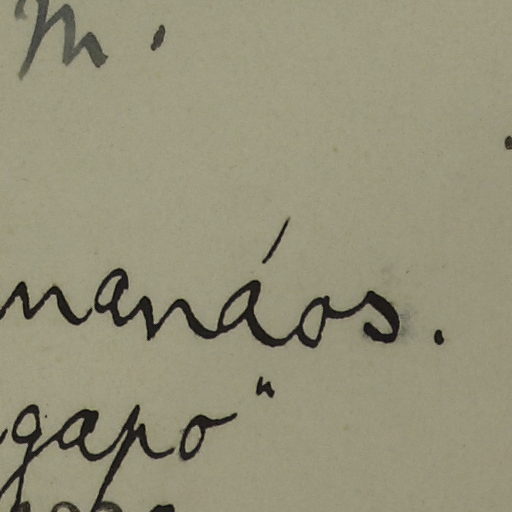 M.
manáos.
gapo"